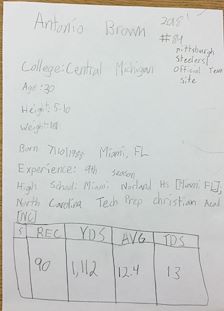 Antonio Brown 2018
#84
Pittsburgh
Steelers
Official Team
site
College: Central Michigan
Age: 30
Height: 5-10
Weight: 181
Born 7/10/1988 Miami, FL
Experience: 9th season
High School: Miami Norland Hs [Miami FL];
North Carolina Tech Prep Christian Acad
[NC]
REC YDS AVG TDS
90 1,112 12.4 13